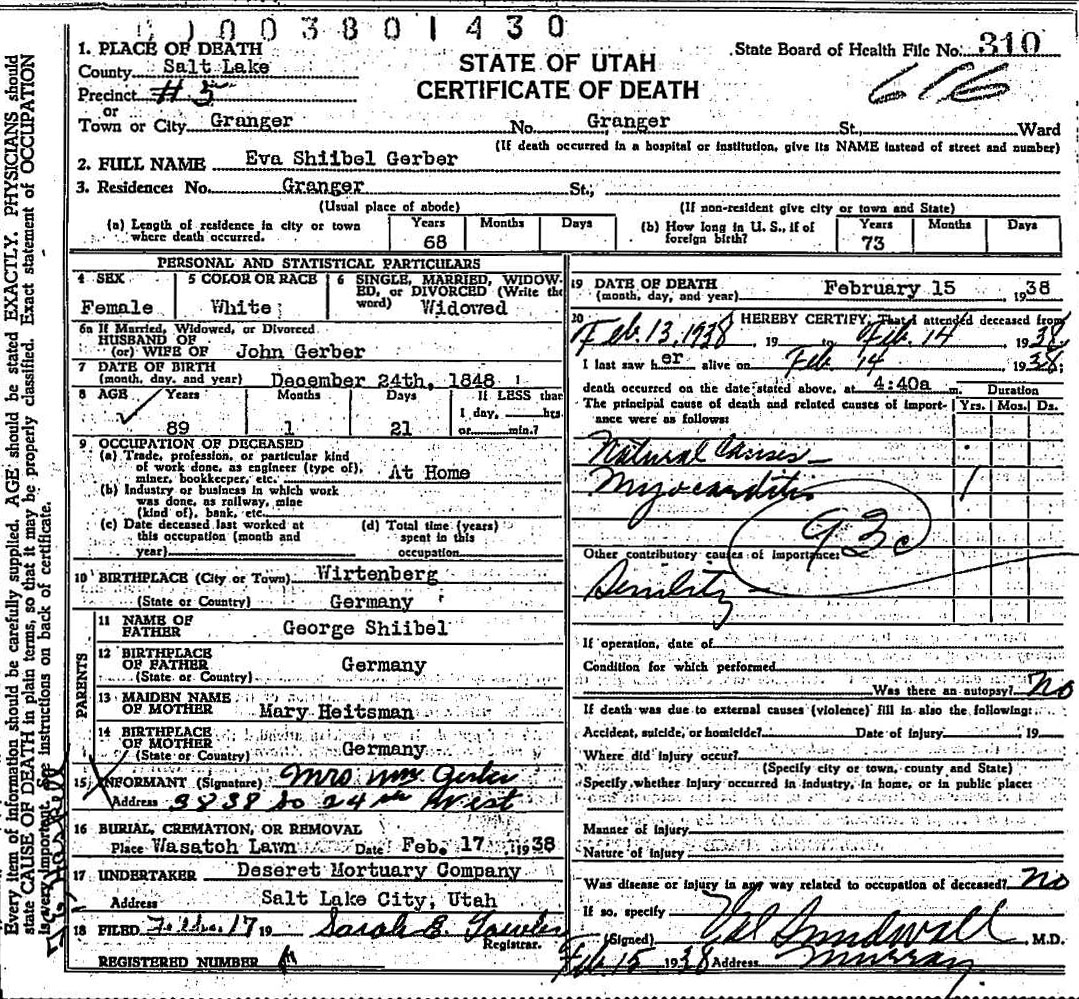 0003801430
1. PLACE OF DEATH
County Salt Lake
Precinct #5
or
Town or City Granger No. Granger St., Ward
(If death occurred in a hospital or institution, give its NAME instead of street and number)
STATE OF UTAH
CERTIFICATE OF DEATH
State Board of Health File No. 310
616
2. FULL NAME Eva Shiibel Gerber
3. Residences No. Granger St.,
(Usual place of abode) (If non-resident give city or town and State)
(a) Length of residence in city or town where death occurred. Years 68 Months Days
(b) How long in U. S., if of foreign birth? Years 73 Months Days
PERSONAL AND STATISTICAL PARTICULARS
4 SEX Female
5 COLOR OR RACE White
6 SINGLE, MARRIED, WIDOWED, or DIVORCED (Write the word) Widowed
6a If Married, Widowed, or Divorced
HUSBAND OF
(or) WIFE OF John Gerber
7 DATE OF BIRTH
(month, day, and year) December 24th, 1848
8 AGE Years 89 Months 1 Days 21 If LESS than 1 day, hrs. or min.?
9 OCCUPATION OF DECEASED
(a) Trade, profession, or particular kind
of work done, as engineer (type of),
miner, bookkeeper, etc. At Home
(b) Industry or business in which work
was done, as railway, mine
(kind of), bank, etc.
(c) Date deceased last worked at
this occupation (month and
year)
(d) Total time (years)
spent in this
occupation
10 BIRTHPLACE (City or Town) Wirtenberg
(State or Country) Germany
PARENTS
11 NAME OF
FATHER George Shiibel
12 BIRTHPLACE
OF FATHER
(State or Country) Germany
13 MAIDEN NAME
OF MOTHER Mary Heitsman
14 BIRTHPLACE
OF MOTHER
(State or Country) Germany
15 INFORMANT (Signature) Mrs Wm Gerber
Address 3838 So 24th West
16 BURIAL, CREMATION, OR REMOVAL
Place Wasatch Lawn Date Feb. 17 1938
17 UNDERTAKER Deseret Mortuary Company
Address Salt Lake City, Utah
18 FILED 17 19 Sarah E.
Registrar.
REGISTERED NUMBER
19 DATE OF DEATH
(month, day, and year) February 15 1938
20 I HEREBY CERTIFY, That I attended deceased from
Feb. 13, 1938, 19 to Feb. 14 1938
I last saw her alive on Feb 14 1938;
death occurred on the date stated above, at 4:40a m.
Duration
Yrs. Mos. Ds.
The principal cause of death and related causes of importance were as follows:
Natural Causes
Myocarditis 1
93c
Other contributory causes of importance:
Senility
If operation, date of
Condition for which performed
Was there an autopsy? No
If death was due to external causes (violence) fill in also the following:
Accident, suicide, or homicide? Date of injury 19
Where did injury occur?
(Specify city or town, county and State)
Specify whether injury occurred in industry, in home, or in public place:
Manner of injury
Nature of injury
Was disease or injury in any way related to occupation of deceased? No
If so, specify
(Signed) Val Sundwall M.D.
Feb. 15 1938 Address Murray
Every item of information should be carefully supplied. AGE should be stated EXACTLY. PHYSICIANS should
state CAUSE OF DEATH in plain terms, so that it may be properly classified. Exact statement of OCCUPATION
is very important. See instructions on back of certificate.